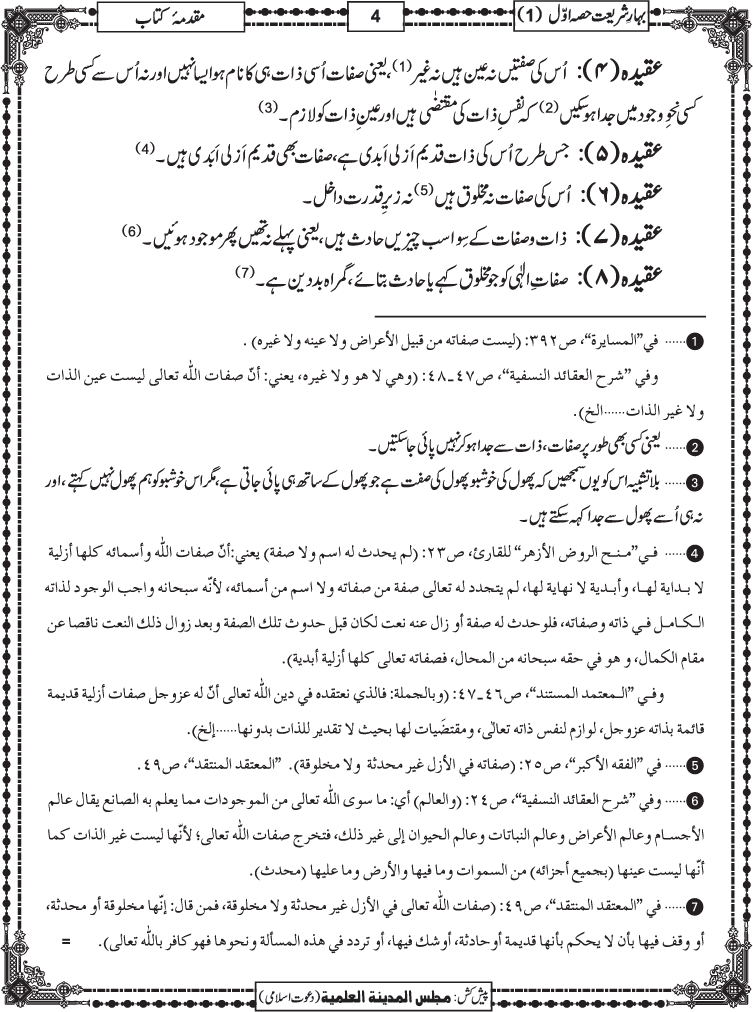 بہارِ شریعت حصہ اوّل (1)
4
مقدمۂ کتاب
عقیدہ (۴): اُس کی صفتیں نہ عین ہیں نہ غیر (1)، یعنی صفات اُسی ذات ہی کا نام ہو ایسا نہیں اور نہ اُس سے کسی طرح
کسی نحوِ وجود میں جدا ہوسکیں (2) کہ نفسِ ذات کی مقتضٰی ہیں اور عینِ ذات کو لازم۔ (3)
عقیدہ (۵): جس طرح اُس کی ذات قدیم اَزلی اَبدی ہے، صفات بھی قدیم اَزلی اَبَدی ہیں۔ (4)
عقیدہ (۶): اُس کی صفات نہ مخلوق ہیں (5) نہ زیرِ قدرت داخل۔
عقیدہ (۷): ذات و صفات کے سِوا سب چیزیں حادث ہیں، یعنی پہلے نہ تھیں پھر موجود ہوئیں۔ (6)
عقیدہ (۸): صفاتِ الٰہی کو جو مخلوق کہے یا حادث بتائے، گمراہ بد دین ہے۔ (7)
1 ...... في ”المسايرة“، ص۳۹۲: (ليست صفاته من قبيل الأعراض ولا عينه ولا غيره) .
وفي ”شرح العقائد النسفية“، ص۴۷_۴۸: (وهي لا هو ولا غيره، يعني: أنّ صفات اللّٰه تعالى ليست عين الذات
ولا غير الذات......الخ).
2 ...... یعنی کسی بھی طور پر صفات، ذات سے جدا ہو کر نہیں پائی جاسکتیں۔
3 ...... بلا تشبیہ اس کو یوں سمجھیں کہ پھول کی خوشبو پھول کی صفت ہے جو پھول کے ساتھ ہی پائی جاتی ہے، مگر اس خوشبو کو ہم پھول نہیں کہتے، اور
نہ ہی اُسے پھول سے جدا کہہ سکتے ہیں۔
4 ...... في ”منح الروض الأزهر“ للقارئ، ص۲۳: (لم يحدث له اسم ولا صفة) يعني:أنّ صفات اللّٰه وأسمائه كلها أزلية
لا بداية لها، وأبدية لا نهاية لها، لم يتجدد له تعالى صفة من صفاته ولا اسم من أسمائه، لأنّه سبحانه واجب الوجود لذاته
الكامل في ذاته وصفاته، فلو حدث له صفة أو زال عنه نعت لكان قبل حدوث تلك الصفة وبعد زوال ذلك النعت ناقصا عن
مقام الكمال، و هو في حقه سبحانه من المحال، فصفاته تعالى كلها أزلية أبدية).
وفي ”المعتمد المستند“، ص۴۶_۴۷: (وبالجملة: فالذي نعتقده في دين اللّٰه تعالى أنّ له عزوجل صفات أزلية قديمة
قائمة بذاته عزوجل، لوازم لنفس ذاته تعالٰى، ومقتضَيات لها بحيث لا تقدير للذات بدونها......إلخ).
5 ...... في ”الفقه الأكبر“، ص۲۵: (صفاته في الأزل غير محدثة ولا مخلوقة). ”المعتقد المنتقد“، ص۴۹.
6 ...... وفي ”شرح العقائد النسفية“، ص۲۴: (والعالم) أي: ما سوى اللّٰه تعالى من الموجودات مما يعلم به الصانع يقال عالم
الأجسام وعالم الأعراض وعالم النباتات وعالم الحيوان إلى غير ذلك، فتخرج صفات اللّٰه تعالى؛ لأنّها ليست غير الذات كما
أنّها ليست عينها (بجميع أجزائه) من السموات وما فيها والأرض وما عليها (محدث).
7 ...... في ”المعتقد المنتقد“، ص۴۹: (صفات اللّٰه تعالى في الأزل غير محدثة ولا مخلوقة، فمن قال: إنّها مخلوقة أو محدثة،
أو وقف فيها بأن لا يحكم بأنها قديمة أو حادثة، أو شك فيها، أو تردد في هذه المسألة ونحوها فهو كافر باللّٰه تعالى). =
پیش کش: مجلس المدينة العلمية (دعوتِ اسلامی)